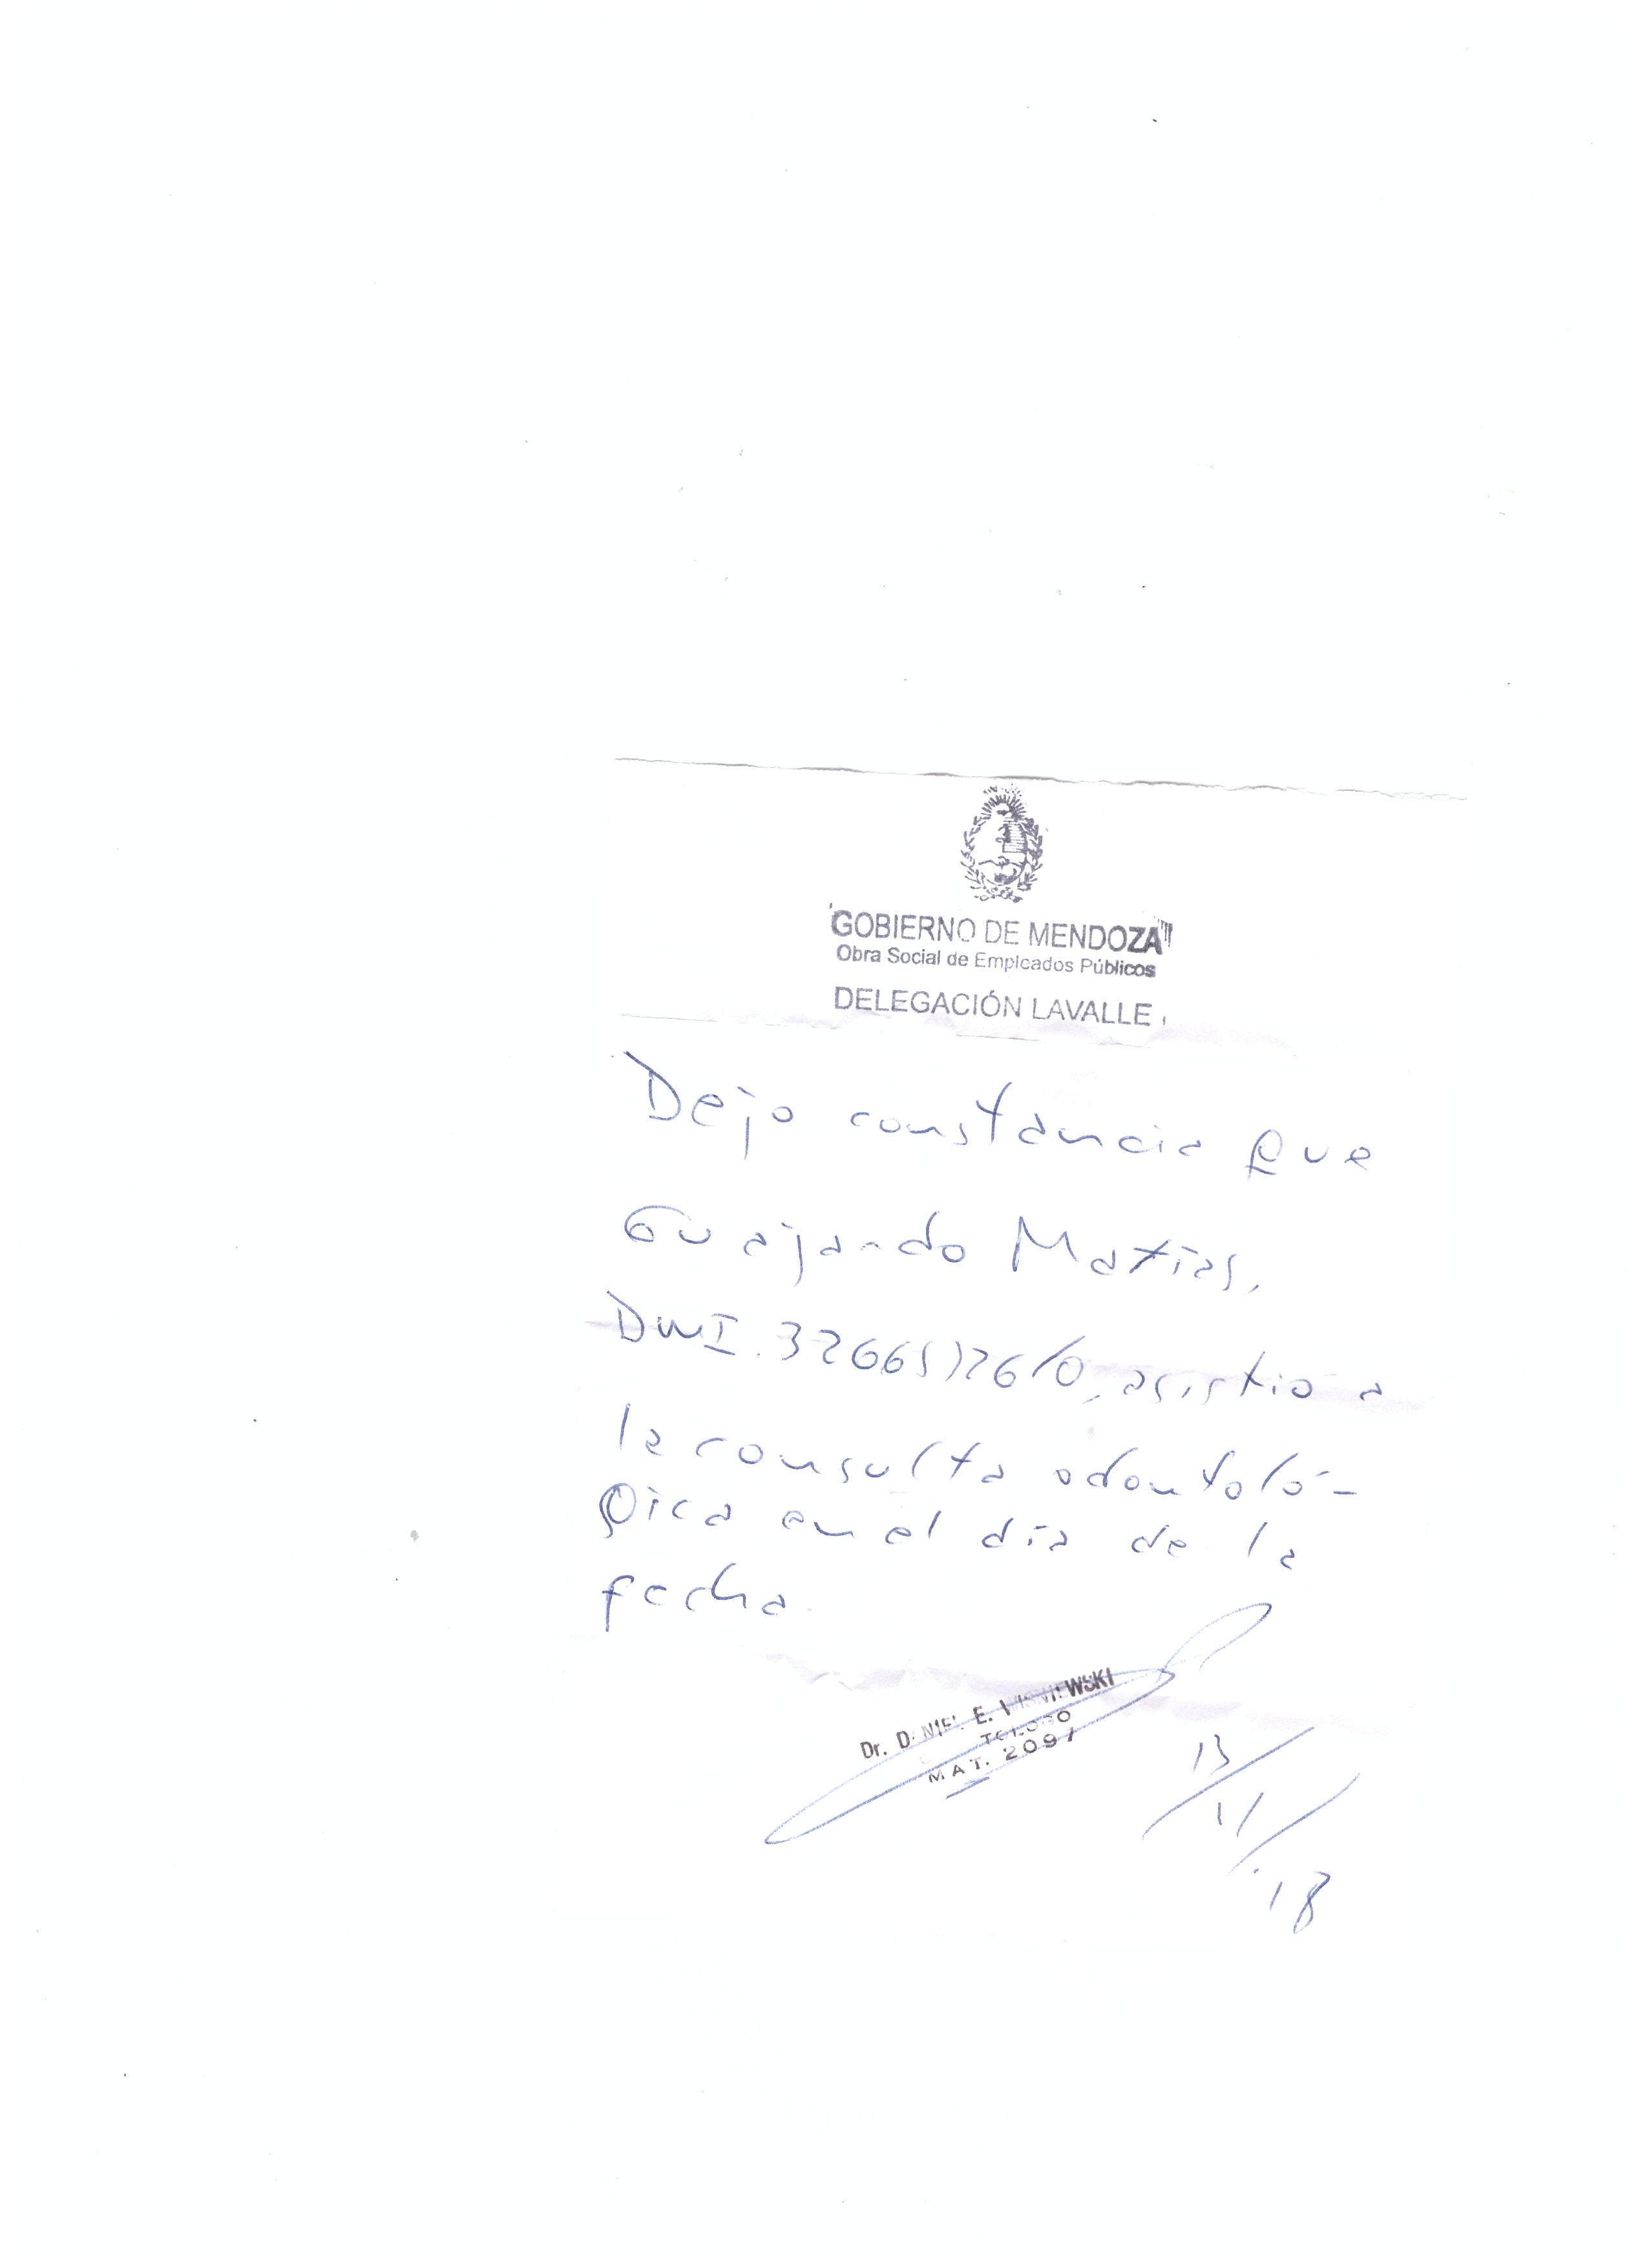 GOBIERNO DE MENDOZA
Obra Social de Empleados Públicos
DELEGACIÓN LAVALLE
Dejo constancia que
Guajardo Matías,
DNI. 32665726/0, asistió a
la consulta odontoló-
gica en el día de la
fecha
Dr. E.
MAT. 2097
13/11/18